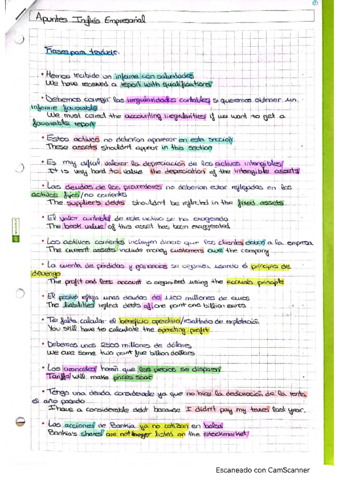 Apuntes Inglés Empresarial
Frases para traducir.
• Hemos recibido un informe con salvedades
We have received a report with qualifications
• Debemos corregir las irregularidades contables si queremos obtener un
informe favorable
We must correct the accounting irregularities if we want to get a
favourable report
• Estos activos no deberían aparecer en esta sección
These assets shouldn't appear in this section
• Es muy difícil valorar la depreciación de los activos intangibles/
It is very hard to value the depreciation of the intangible assets/
• Las deudas de los proveedores no deberían estar reflejadas en los
activos fijos/no corrientes
The suppliers debts shouldn't be reflected in the fixed assets
• El valor contable de este activo se ha exagerado
The book value of this asset has been exaggerated
• Los activos corrientes incluyen dinero que los clientes deben a la empresa
The current assets include money customers owe the company
• La cuenta de pérdidas y ganancias se organiza usando el principio de
devengo
The profit and loss account is organized using the accruals principle
• El pasivo refleja unas deudas de 1.200 millones de euros
The liabilities reflect debts of one point one billion euros
• Te falta calcular el beneficio operativo/resultado de explotación
You still have to calculate the operating profit
• Debemos unos 2500 millones de dólares
We owe some two point five billion dollars
• Los aranceles harán que los precios se disparen
Tariffs will make prices soar
• Tengo una deuda considerable ya que no hice la declaración de la renta
el año pasado
I have a considerable debt because I didn't pay my taxes last year.
• Las acciones de Bankia ya no cotizan en bolsa
Bankia's shares are no longer listed on the stockmarket/
Escaneado con CamScanner